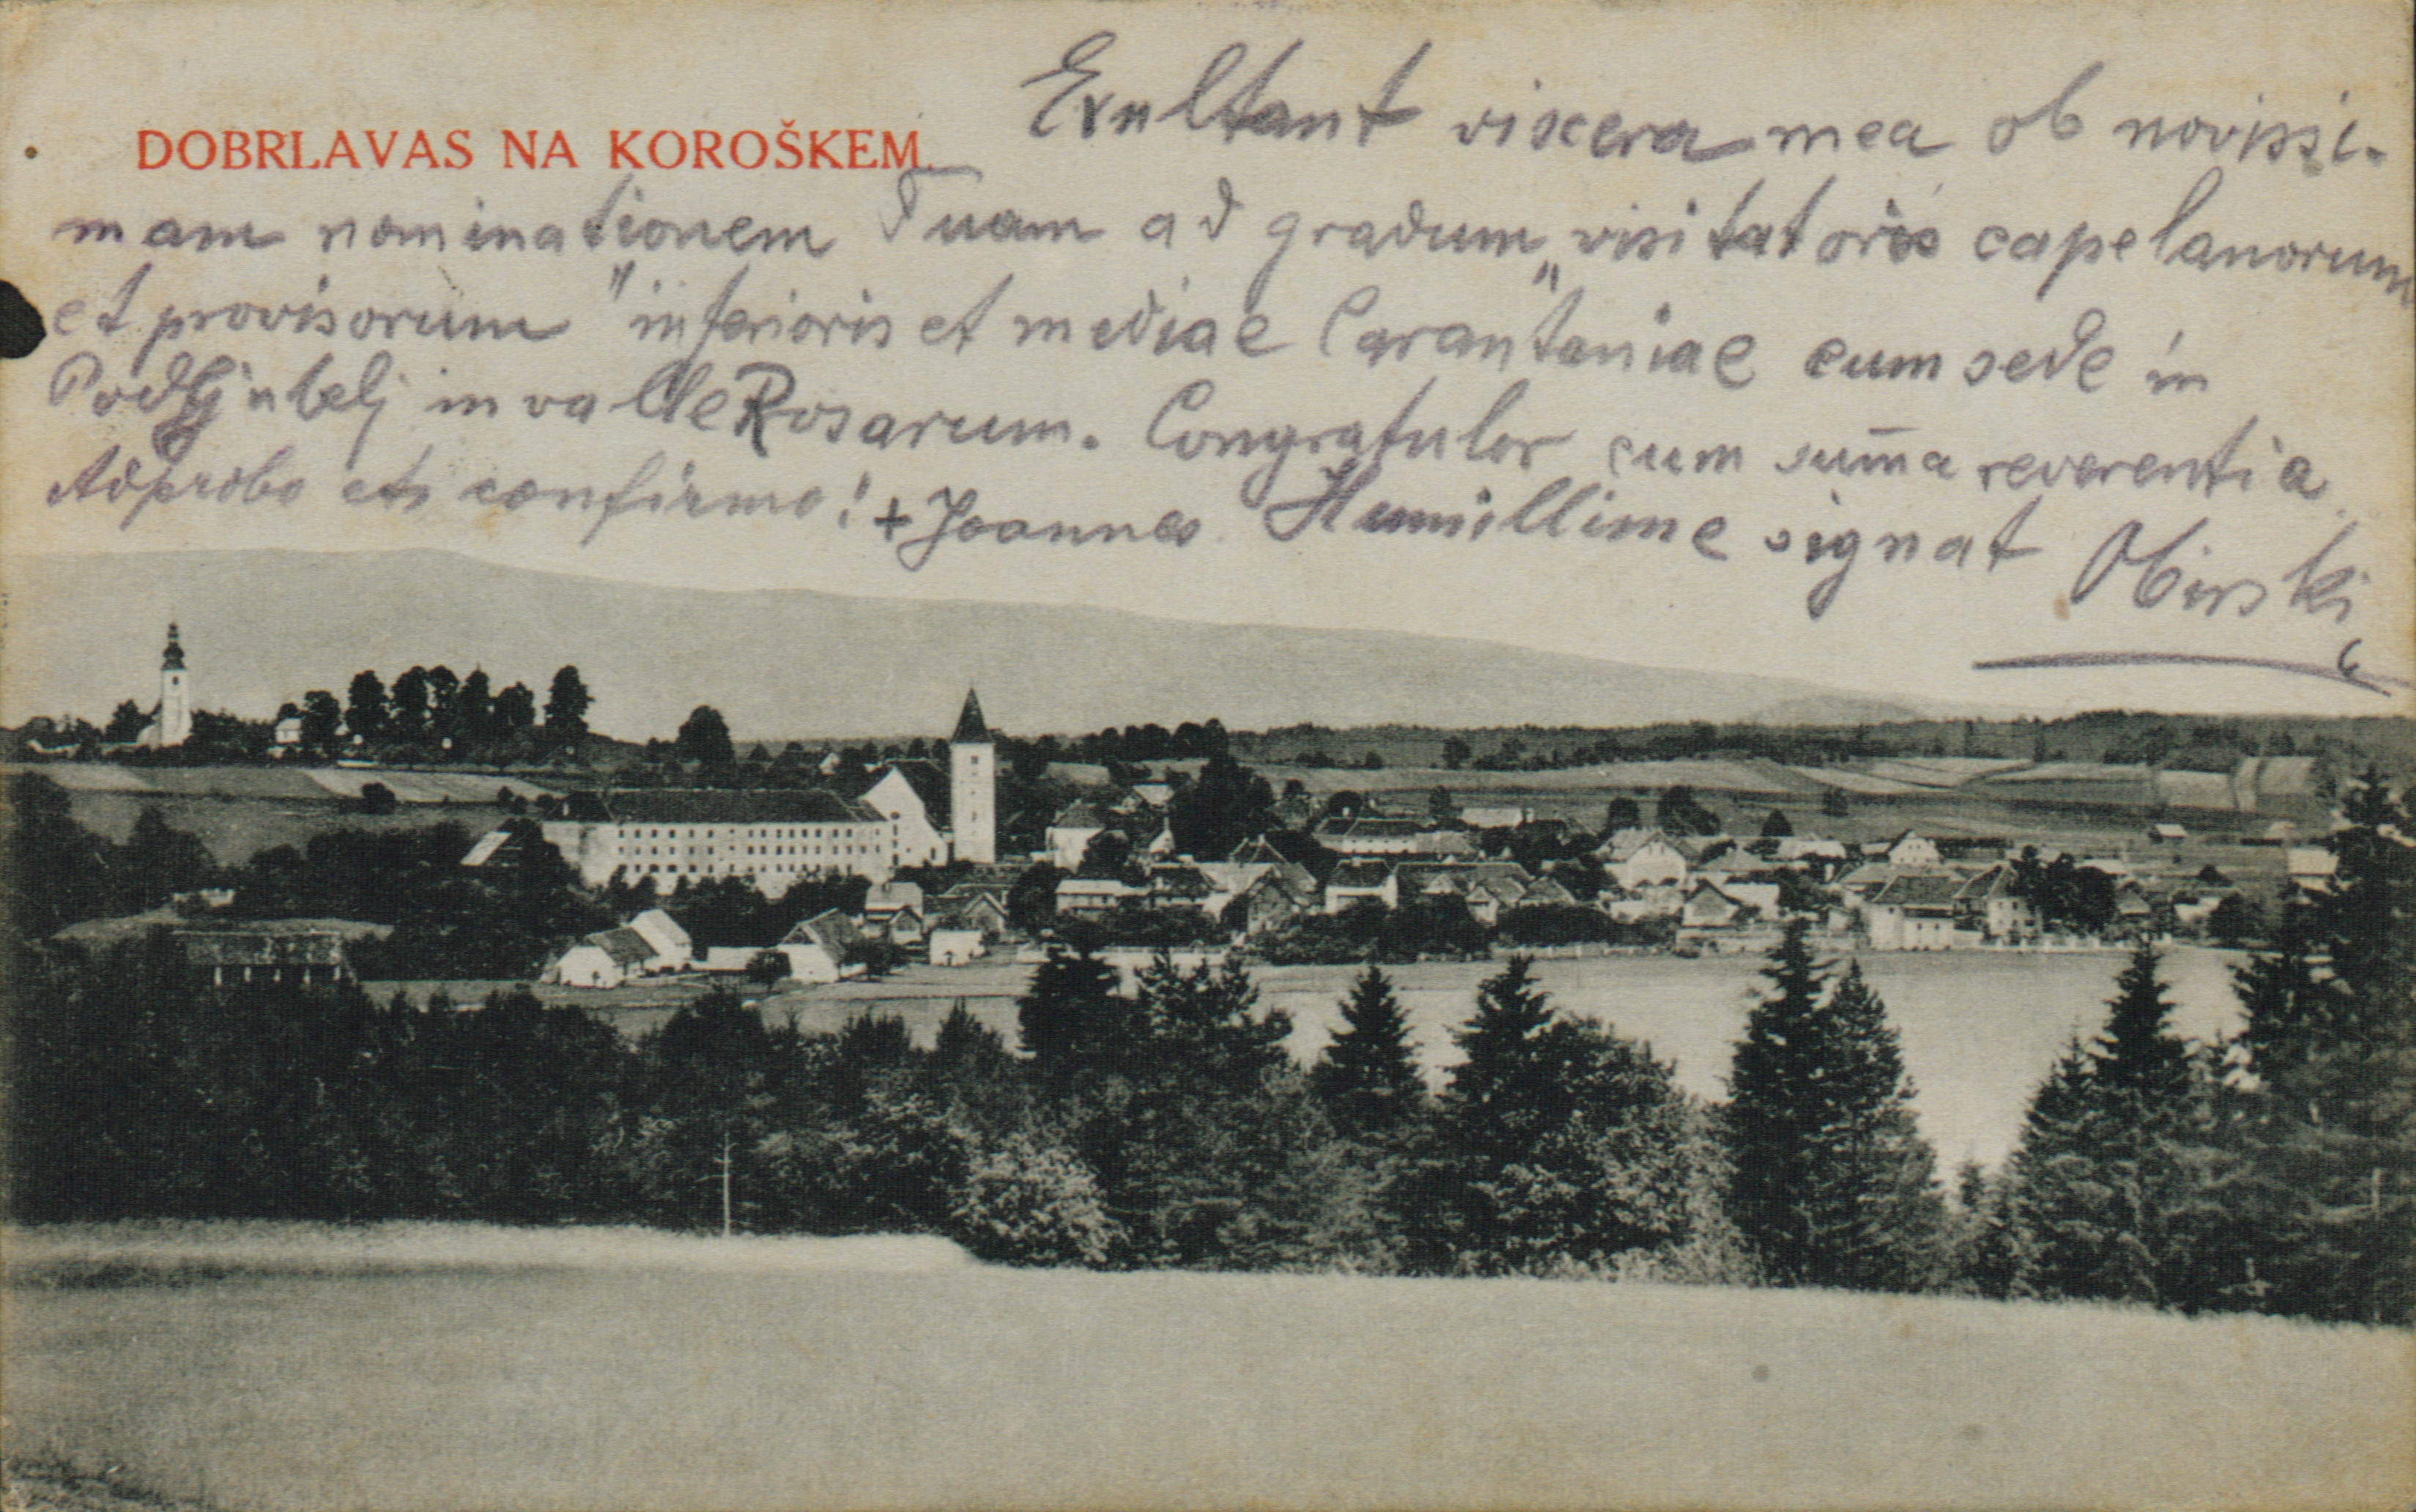 DOBRLAVAS NA KOROŠKEM.
Exultant viscera mea ob novissi-
mam nominationem Tuam ad gradum „visitatoris capelanorum
et provisorum" inferioris et mediae Carantaniae cum sede in
Podljubelj in valle Rosarum. Congratulor cum sum̄a reverentia.
Adprobo et confirmo! + Joannes. Humillime signat Obirski